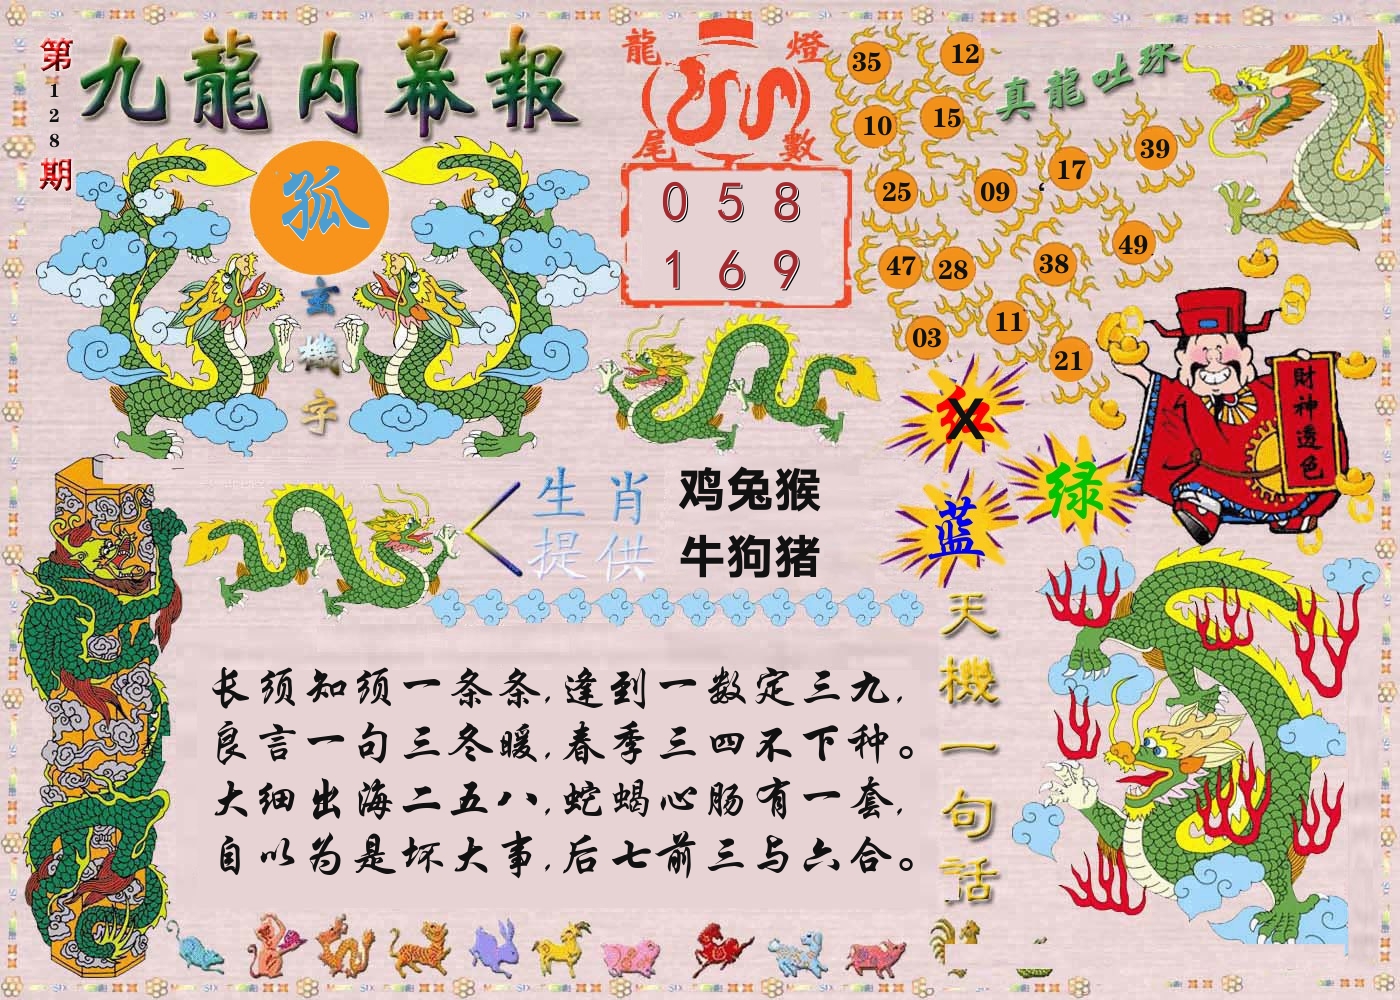 第128期
九龍内幕報
狐
玄機字
龍燈
尾數
0 5 8
1 6 9
真龍吐珠
35
12
10
15
39
17
25
09
49
47
28
38
11
03
21
財神透色
红
X
绿
蓝
生肖
提供
鸡兔猴
牛狗猪
天機一句話
长须知须一条条,逢到一数定三九,
良言一句三冬暖,春季三四不下种。
大细出海二五八,蛇蝎心肠有一套,
自以为是坏大事,后七前三与六合。